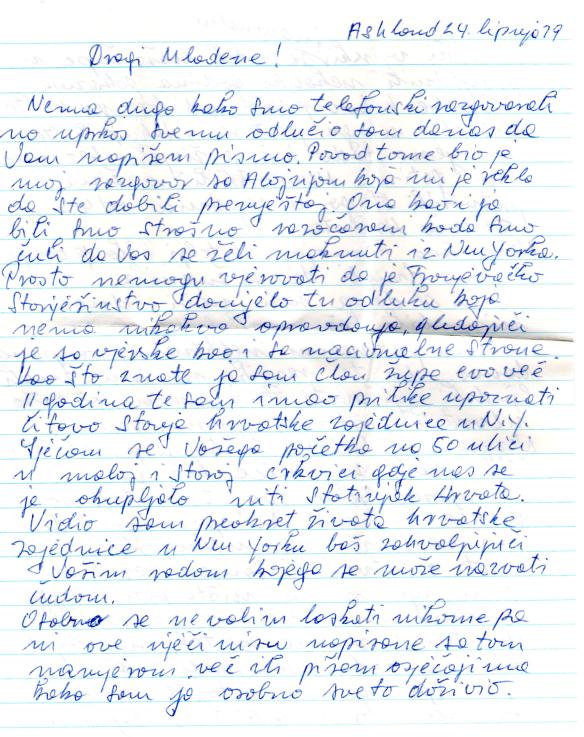 Ashland 24. lipnja 79
Dragi Mladene!
Nema dugo kako smo telefonski razgovarali
no uprkos svemu odlučio sam danas da
Vam napišem pismo. Povod tome bio je
moj razgovor sa Alojzijom koja mi je rekla
da ste dobili premještaj. Ona kao i ja
bili smo strašno razočarani kada smo
čuli da Vas se želi maknuti iz New Yorka.
Prosto nemogu vjerovati da je Franjevačko
Starješinstvo donijelo tu odluku koja
nema nikakva opravdanja, gledajući
je sa vjerske kao i sa nacionalne strane.
Kao što znate ja sam član župe evo već
11 godina te sam imao prilike upoznati
čitavo stanje hrvatske zajednice u N.Y.
Sjećam se Vašega početka na 50 ulici
u maloj i staroj crkvici gdje nas se
je okupljalo niti stotinjak Hrvata.
Vidio sam preokret života hrvatske
zajednice u New Yorku baš zahvaljujući
Vašim radom kojega se može nazvati
čudom.
Osobno se nevolim laskati nikome pa
ni ove riječi nisu napisane sa tom
namjerom, već ih pišem osjećajima
kako sam ja osobno sve to doživio.